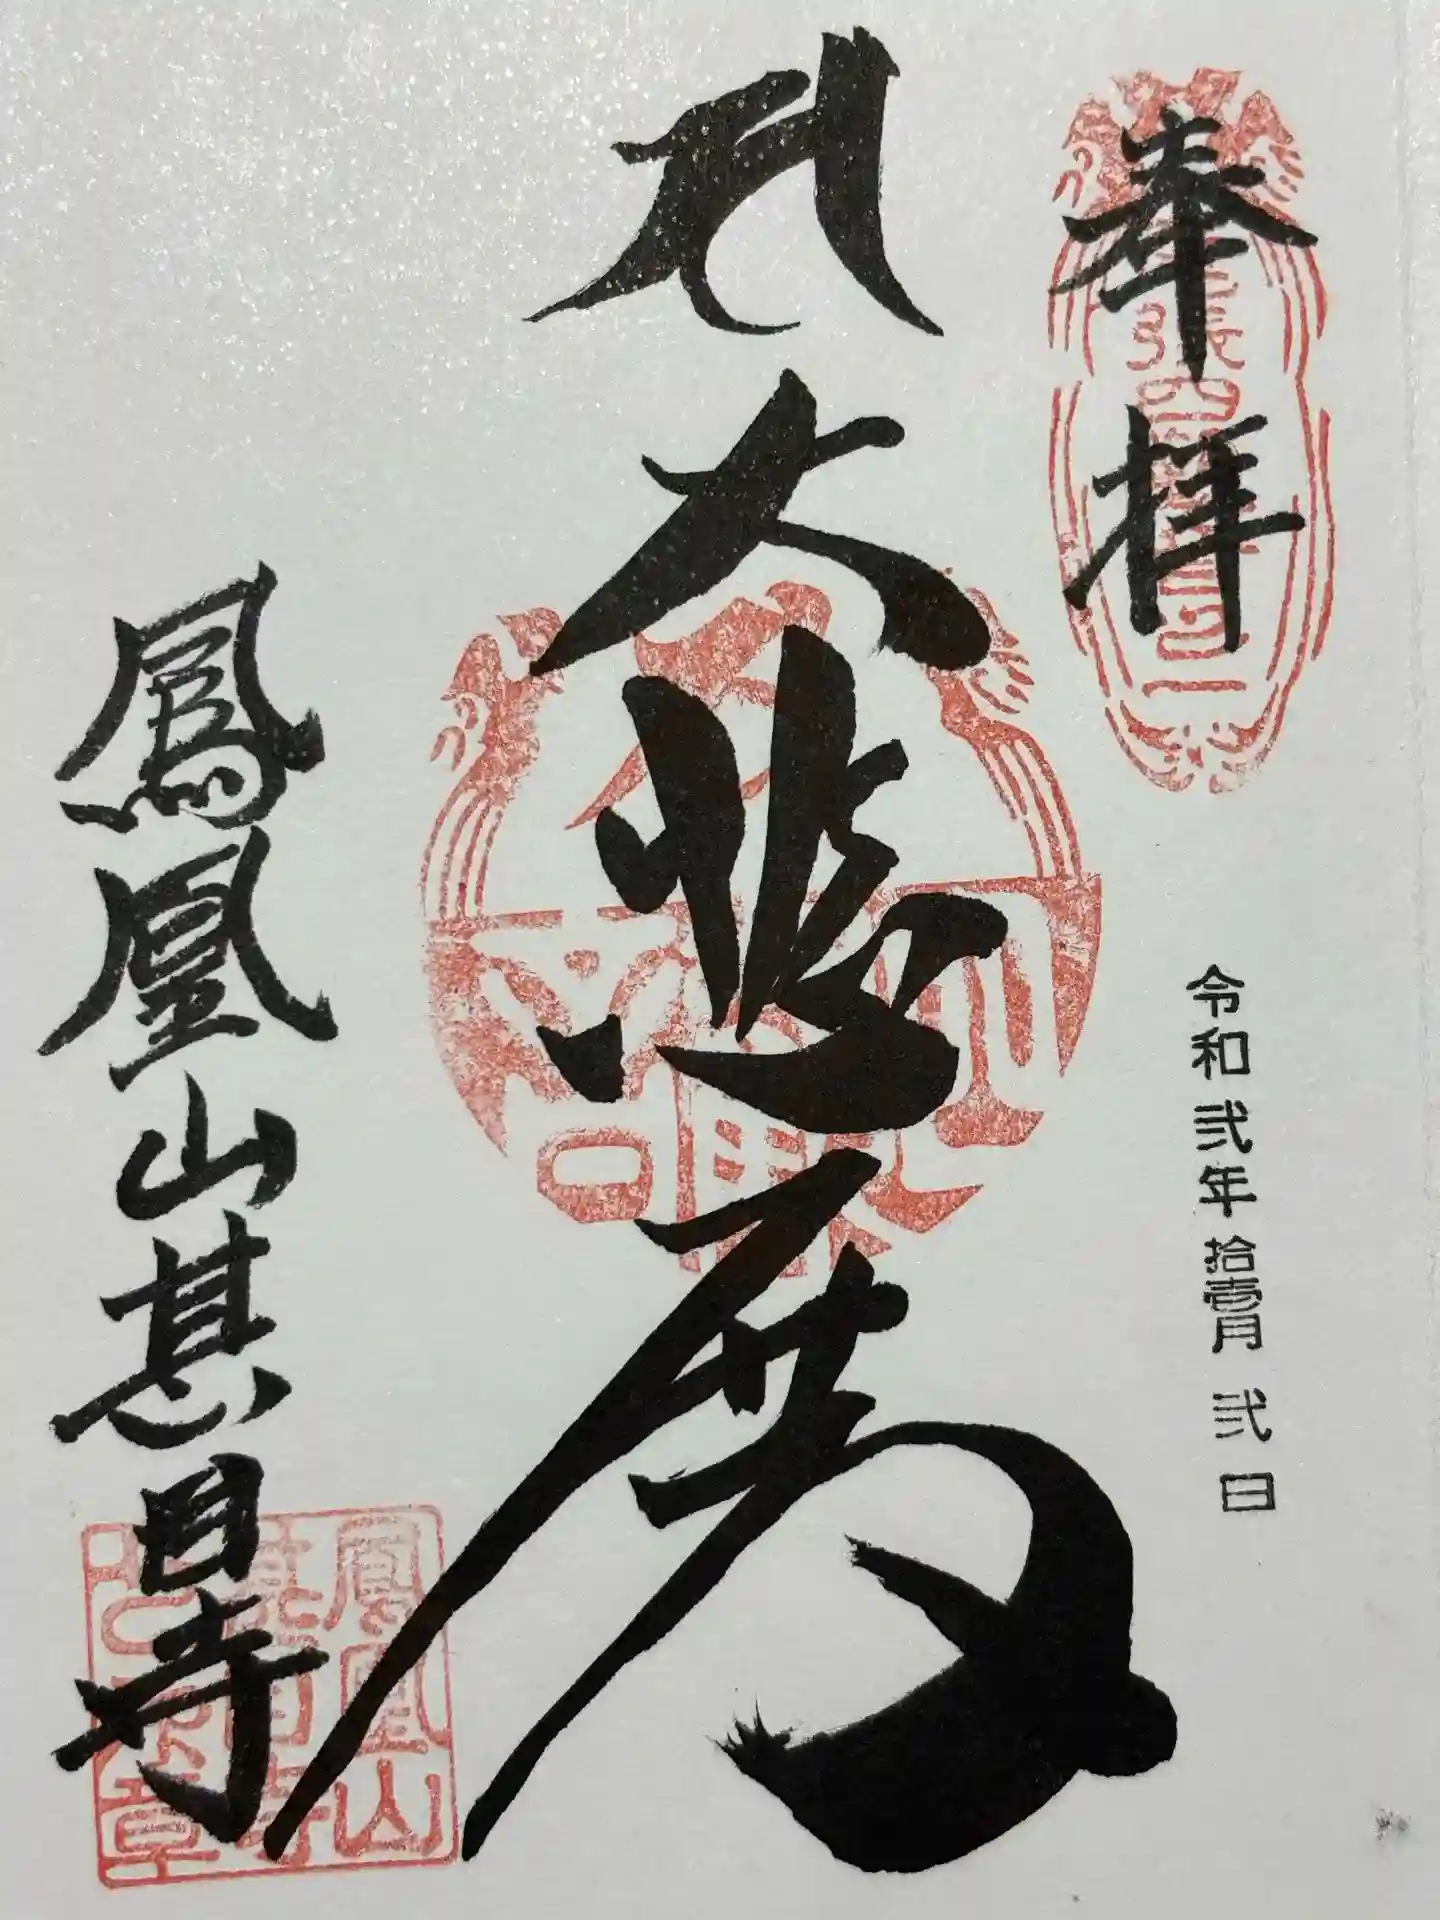 奉拝
令和弐年拾壹月弐日
大悲殿
鳳凰山甚目寺